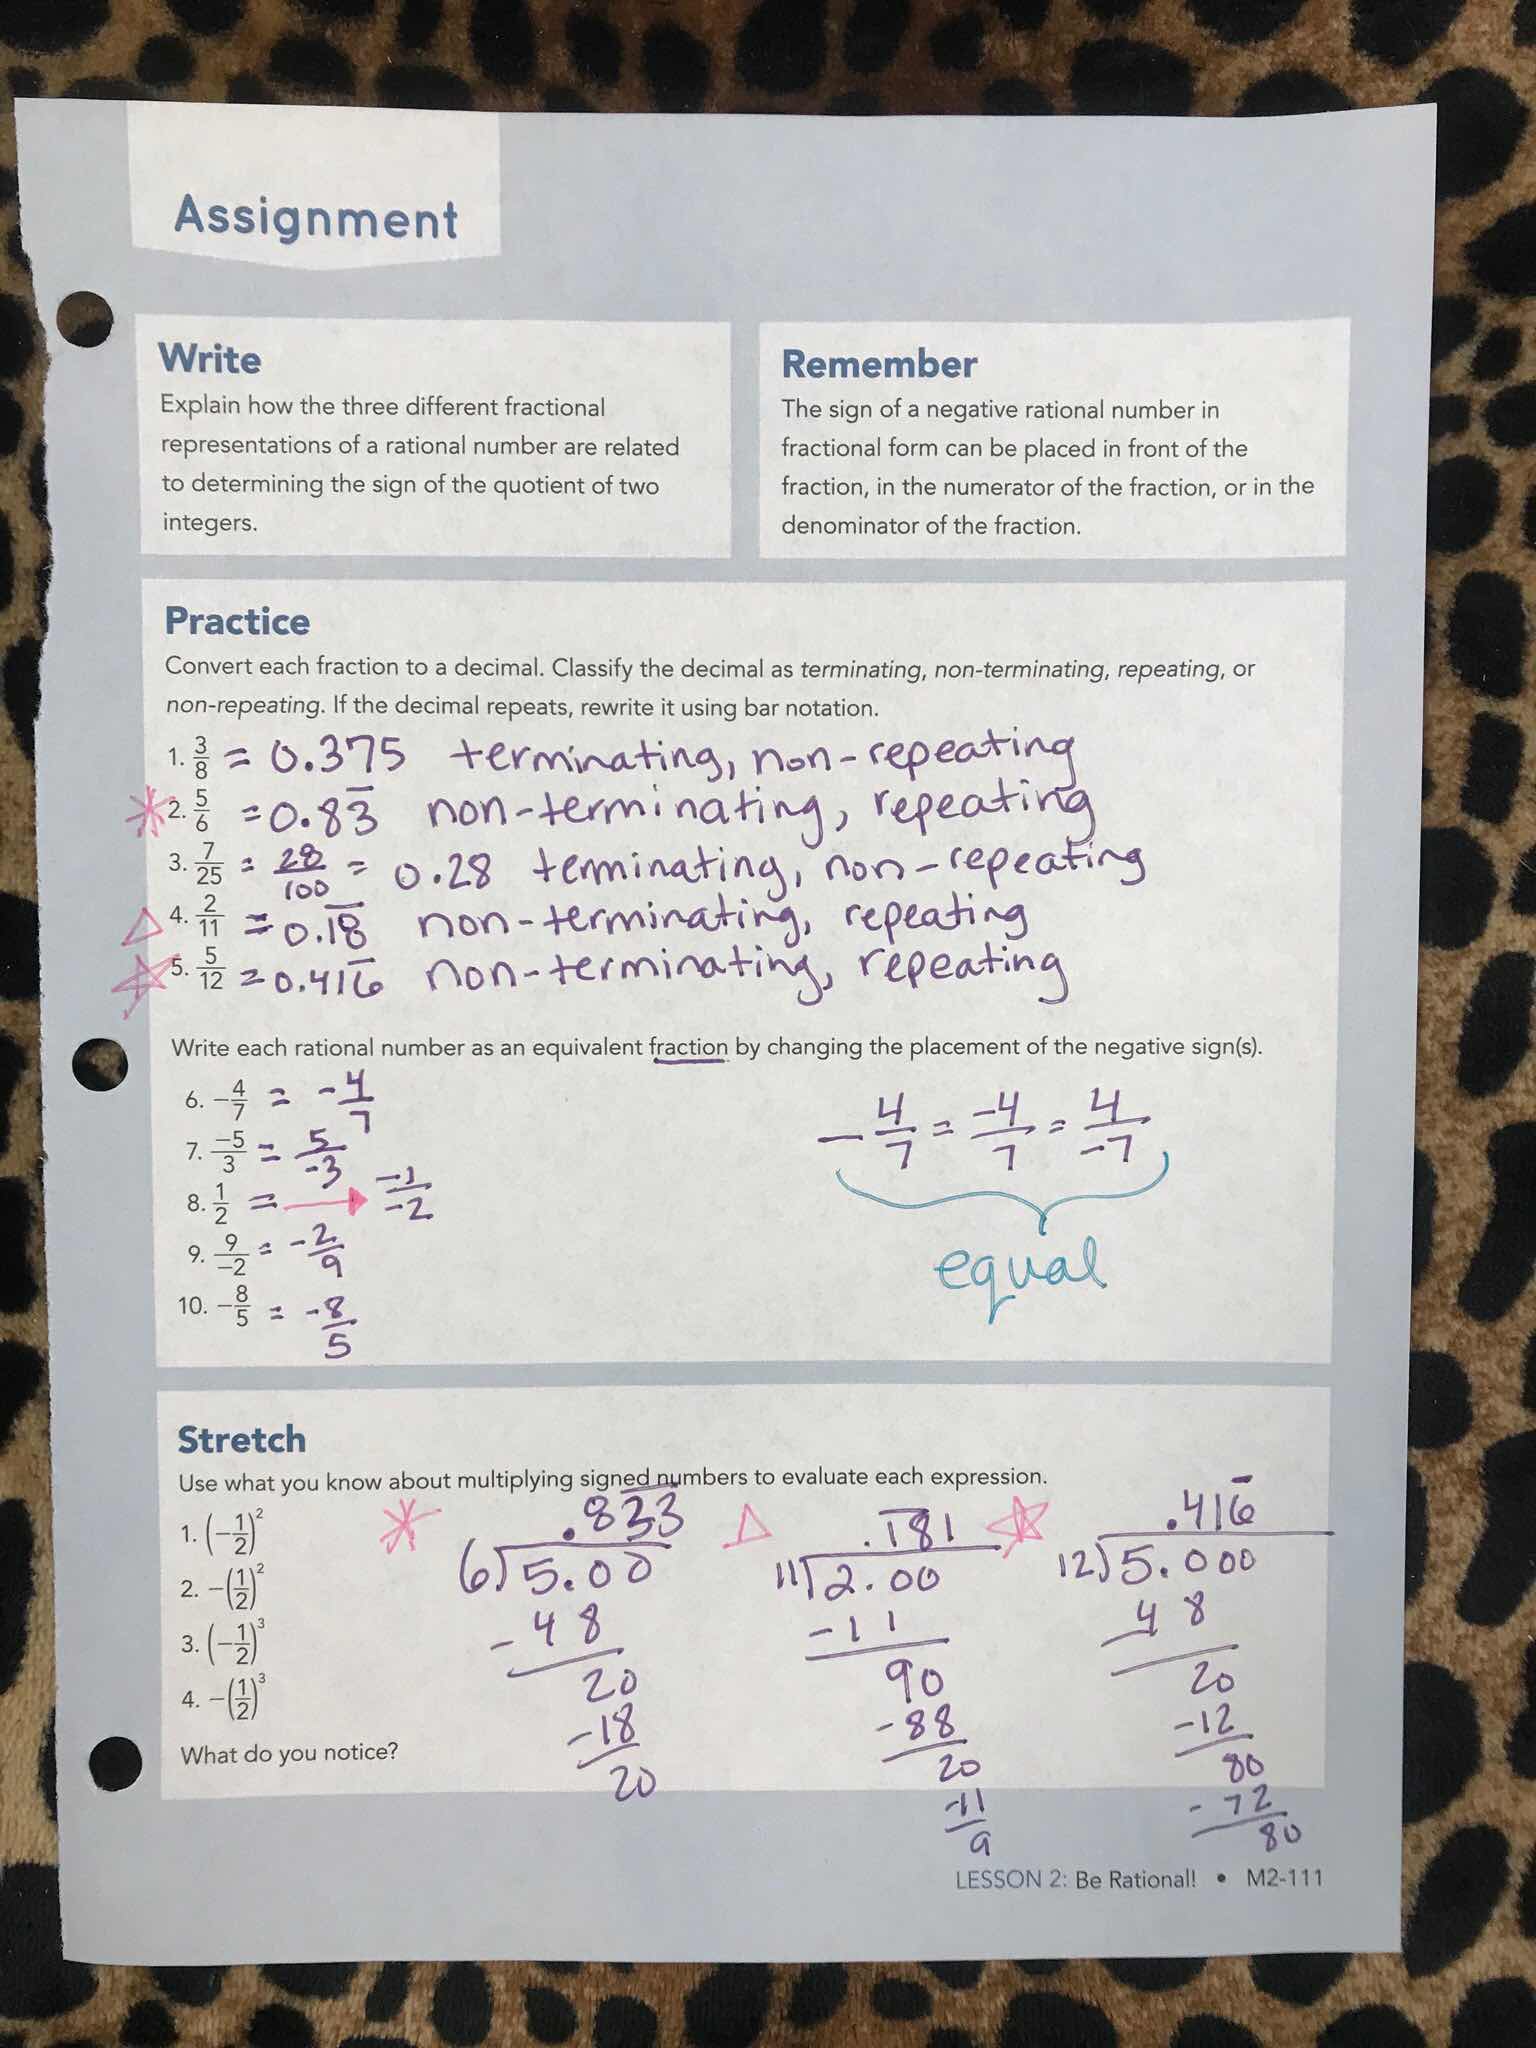 Assignment
Write
Explain how the three different fractional
representations of a rational number are related
to determining the sign of the quotient of two
integers.
Remember
The sign of a negative rational number in
fractional form can be placed in front of the
fraction, in the numerator of the fraction, or in the
denominator of the fraction.
Practice
Convert each fraction to a decimal. Classify the decimal as terminating, non-terminating, repeating, or
non-repeating. If the decimal repeats, rewrite it using bar notation.
1. 3/8 = 0.375 terminating, non-repeating
2. 5/6 = 0.83̅ non-terminating, repeating
3. 7/25 = 28/100 = 0.28 terminating, non-repeating
4. 2/11 = 0.1̅8̅ non-terminating, repeating
5. 5/12 = 0.416̅ non-terminating, repeating
Write each rational number as an equivalent fraction by changing the placement of the negative sign(s).
6. -4/7 = -4/7
7. -5/3 = 5/-3
8. 1/2 = → -1/-2
9. 9/-2 = -2/9
10. -8/5 = -8/5
- 4/7 = -4/7 = 4/-7
equal
Stretch
Use what you know about multiplying signed numbers to evaluate each expression.
1. (-1/2)²
2. -(1/2)²
3. (-1/2)³
4. -(1/2)³
What do you notice?
.83̅3̅
6)5.00
-48
20
-18
20
.1̅8̅1
11)2.00
-11
90
-88
20
-11
9
.416̅
12)5.000
48
20
-12
80
-72
80
LESSON 2: Be Rational! • M2-111